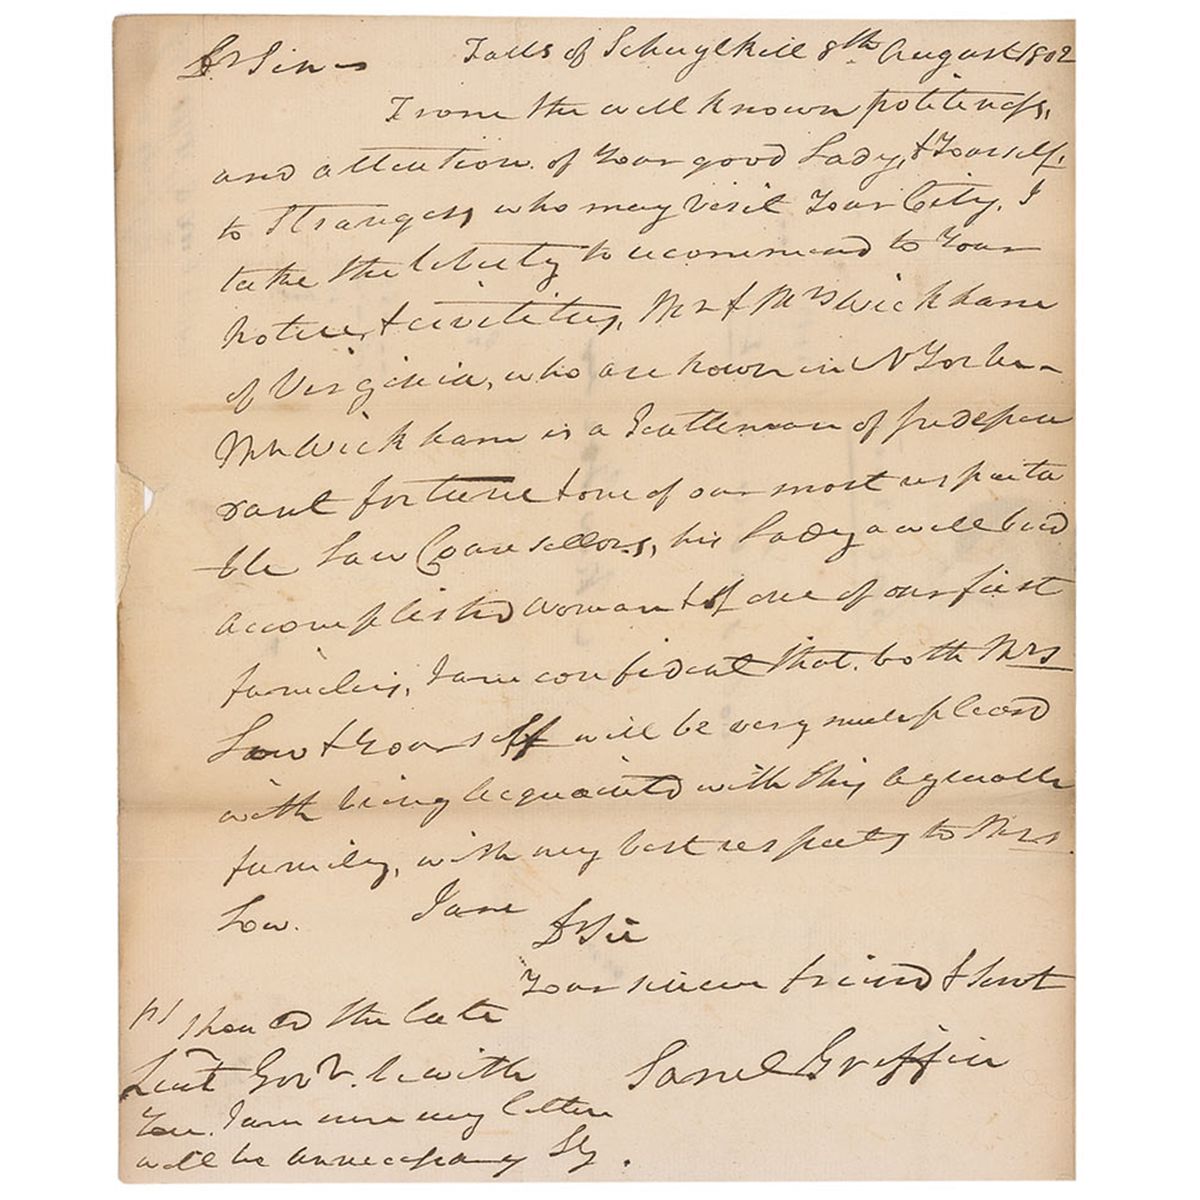 Dr Sir Falls of Schuylkill 8th August 1802
From the well known politeness,
and attention of Your good Lady, & Yourself,
to Strangers, who may visit Your City, I
take the liberty to recommend to Your
notice, & civilities, Mr & Mrs Wickham
of Virginia, who are now in N York
Mr Wickham is a Gentleman of Indepen
dant fortune & one of our most respecta
ble Law Counsellors, his Lady a well bred
accomplished woman & of one of our first
families, I am confident that both Mrs
Low & Yourself will be very much pleased
with being acquainted with this agreeable
family, with my best respects to Mrs
Low. I am
Dr Sir
Your sincere friend & Servt
Saml Griffin
PS Should the late
Lieut Govr. be with
You. I am sure my letter
will be unnecessary SG.